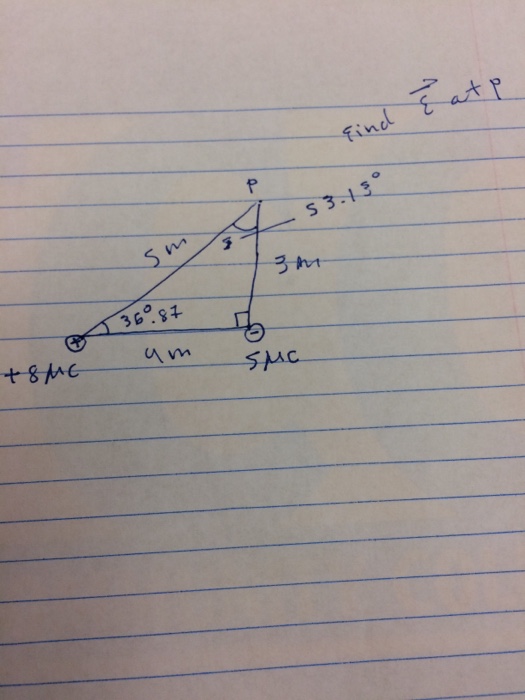 Find E⃗ at P
P
53.13°
5m
3m
36°.87
4m
+
−
+8μC
5μC